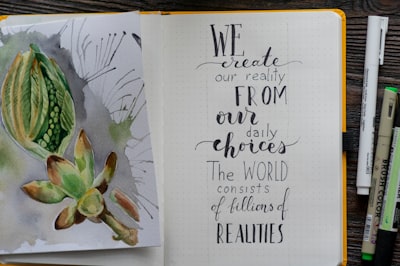 WE
create
our reality
FROM
our
daily
choices
The WORLD
consists
of billions of
REALITIES